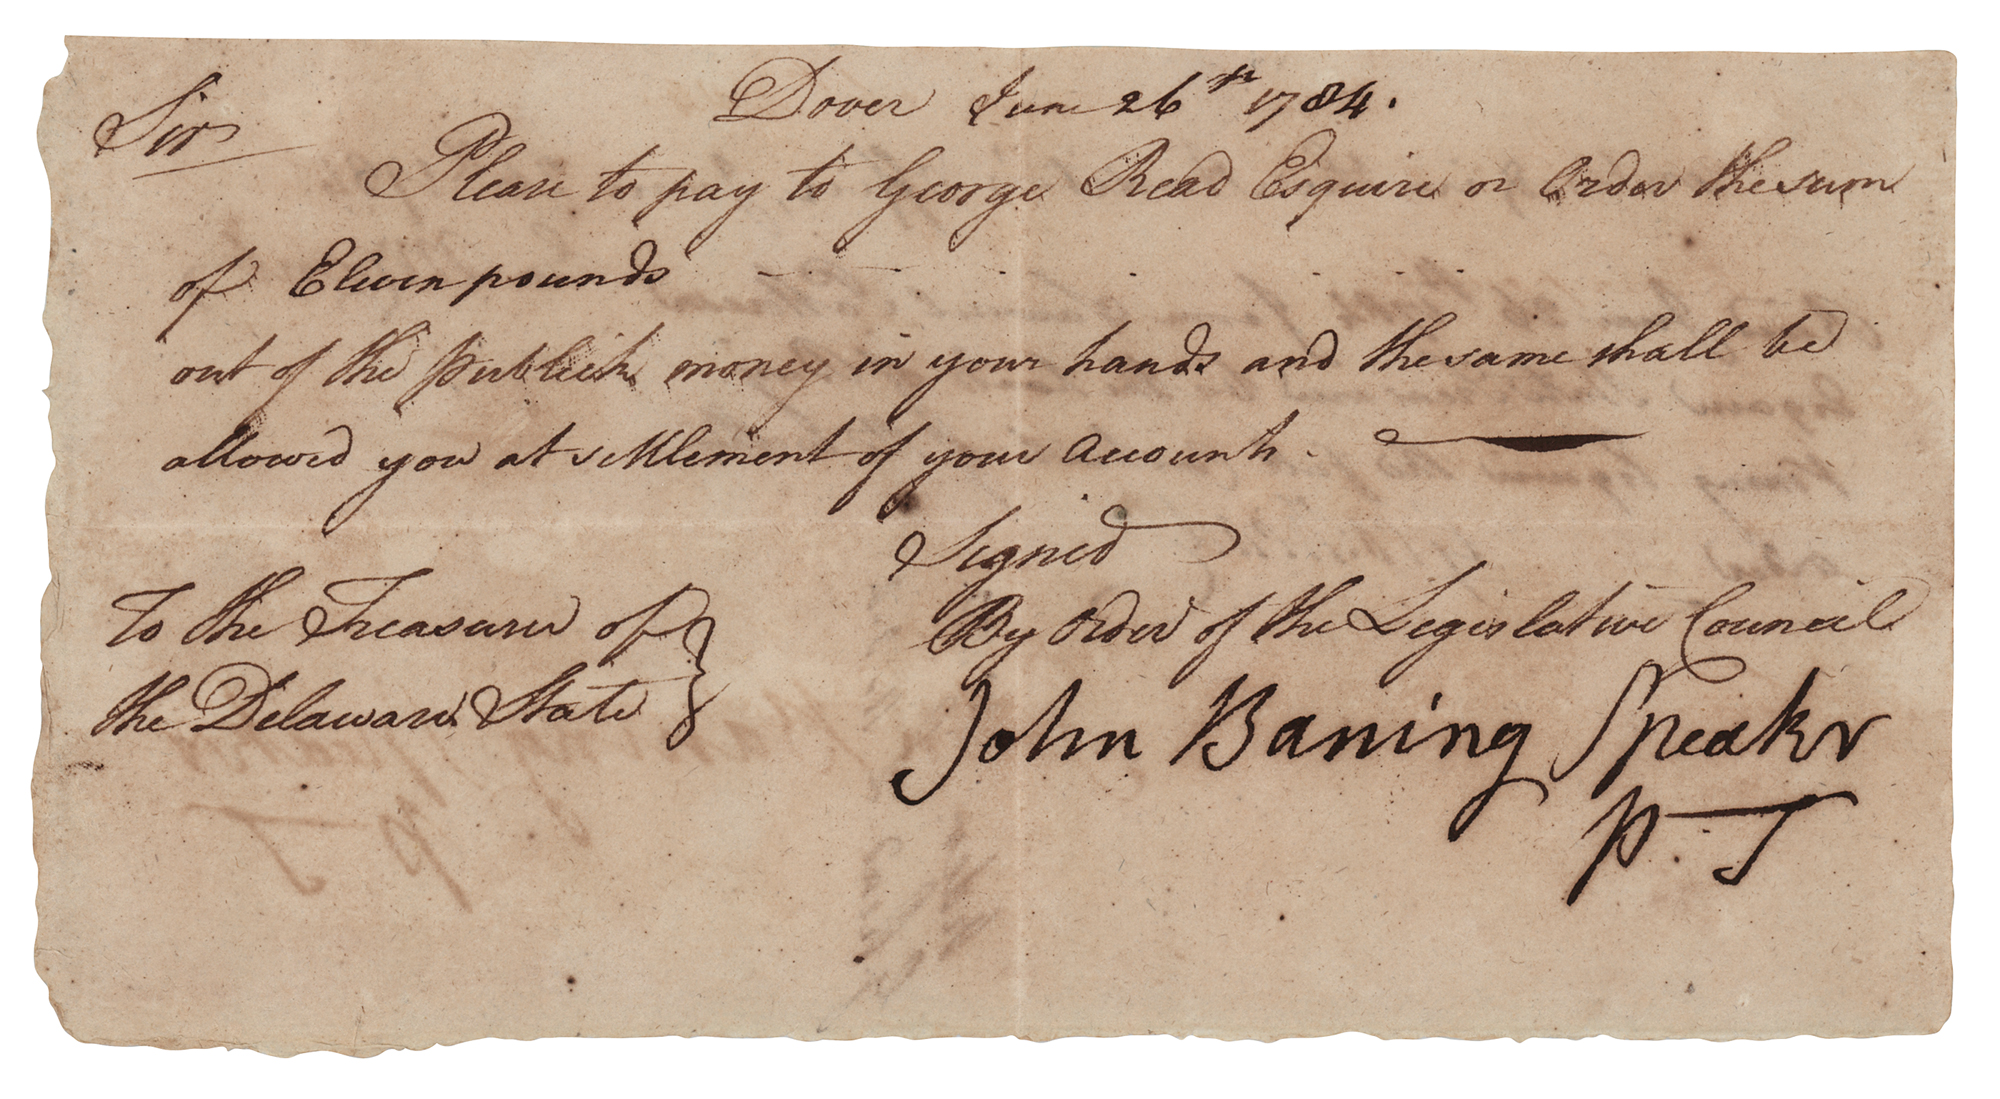 Dover June 26th 1784.
Sir
Please to pay to George Read Esquire or Order the sum
of Eleven pounds
out of the Publick money in your hands and the same shall be
allowed you at settlement of your Accounts.
Signed
By Order of the Legislative Council
To the Treasurer of
the Delaware State
John Baning Speaker
P. T